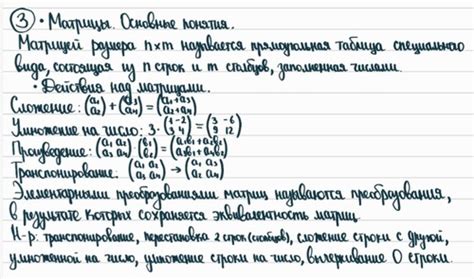 ③ • Матрицы. Основные понятия.
Матрицей размера n×m называется прямоугольная таблица специального
вида, состоящая из n строк и m столбцов, заполненная числами.
• Действия над матрицами.
Сложение: (a₁ a₂) + (a₃ a₄) = (a₁+a₃ a₂+a₄)
Умножение на число: 3·(1 -2 3 4) = (3 -6 9 12)
Произведение: (a₁ a₂ a₃ a₄)·(b₁ b₂) = (a₁b₁+a₂b₂ a₃b₁+a₄b₂)
Транспонирование: (a₁ a₂ a₃ a₄) → (a₁ a₃ a₂ a₄)
Элементарными преобразованиями матриц называются преобразования,
в результате которых сохраняется эквивалентность матриц.
Н-р: транспонирование, перестановка 2 строк (столбцов), сложение строки с другой,
умноженной на число, умножение строки на число, вычеркивание 0 строки.